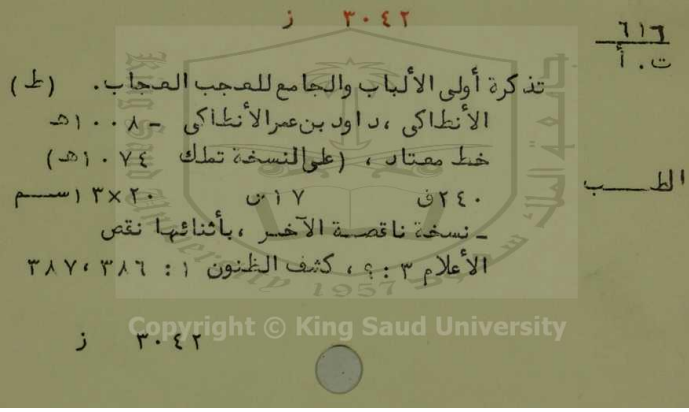 ٣٠٤٢ ز
٦١٦
ت . أ
تذكرة أولى الألباب والجامع للعجب العجاب. (ط)
الأنطاكى ،داود بن عمر الأنطاكى - ١٠٠٨هـ
خط معتاد ، (على النسخة تملك ١٠٧٤هـ)
الطب
٢٤٠ق ١٧س ٢٠×١٣سم
- نسخة ناقصة الآخر ،بأثنائها نقص
الأعلام ٣ : ؟ ، كشف الظنون ١ : ٣٨٦ ،٣٨٧
1957
Copyright © King Saud University
٣٠٤٢ ز